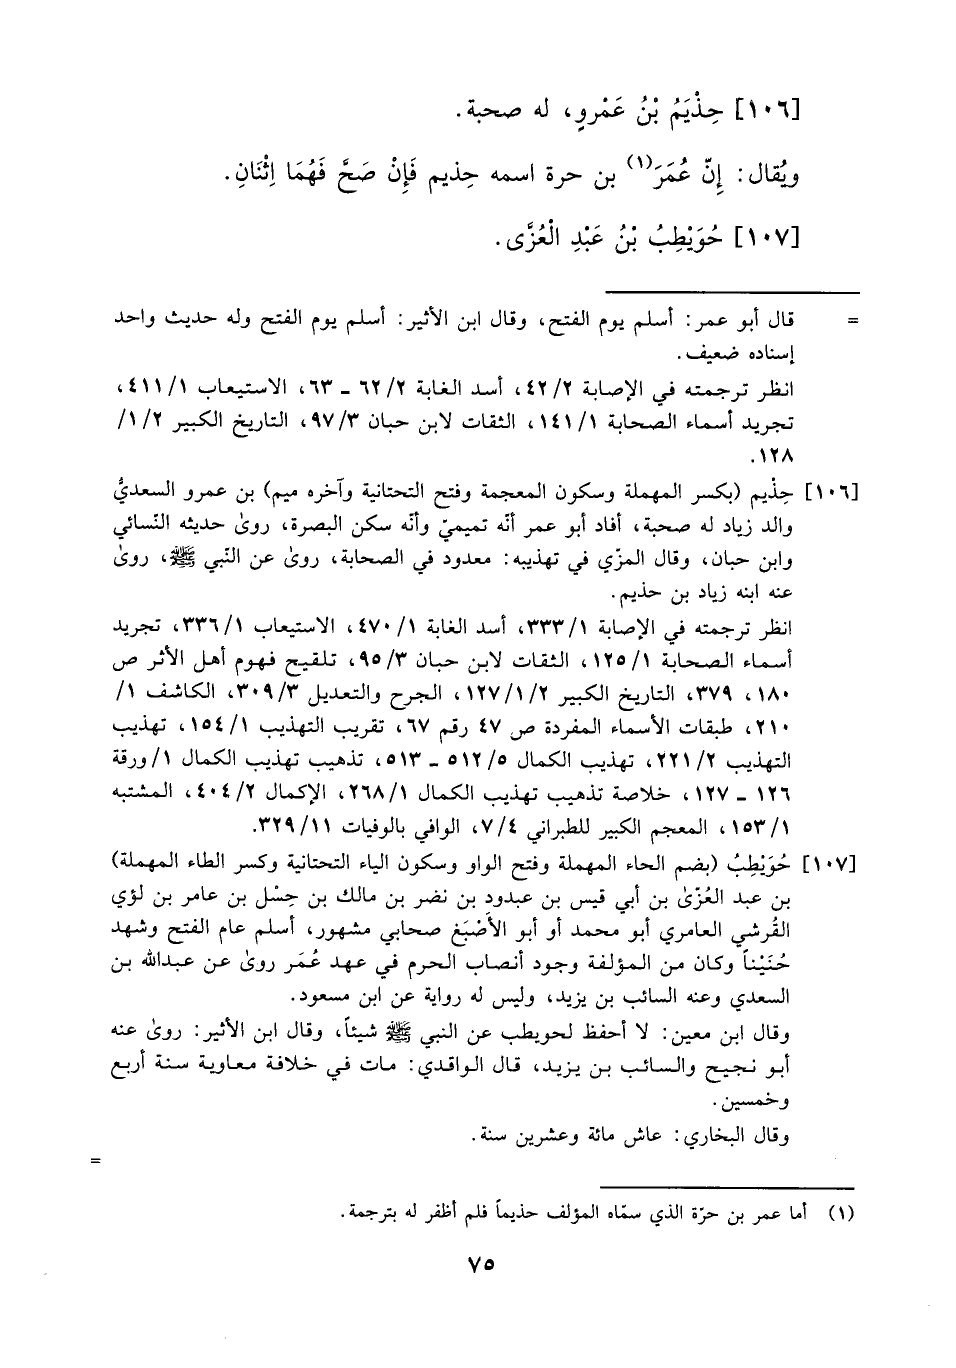 [١٠٦] حِذْيَمُ بْنُ عَمْروٍ، له صحبة.
ويُقال: إِنّ عُمَرَ(١) بن حرة اسمه حِذيم فَإِنْ صَحَّ فَهُمَا اِثْنَانِ.
[١٠٧] حُوَيْطِبُ بْنُ عَبْدِ الْعُزَّى.
= قال أبو عمر: أسلم يوم الفتح، وقال ابن الأثير: أسلم يوم الفتح وله حديث واحد
إسناده ضعيف.
انظر ترجمته في الإصابة ٤٢/٢، أسد الغابة ٦٢/٢ ـ ٦٣، الاستيعاب ٤١١/١،
تجريد أسماء الصحابة ١٤١/١، الثقات لابن حبان ٩٧/٣، التاريخ الكبير ١/٢/
١٢٨.
[١٠٦] حِذْيم (بكسر المهملة وسكون المعجمة وفتح التحتانية وآخره ميم) بن عمرو السعديُّ
والد زياد له صحبة، أفاد أبو عمر أنّه تميميّ وأنّه سكن البصرة، روىٰ حديثه النّسائي
وابن حبان، وقال المزّي في تهذيبه: معدود في الصحابة، روىٰ عن النّبي ﷺ، روىٰ
عنه ابنه زياد بن حذيم.
انظر ترجمته في الإصابة ٣٣٣/١، أسد الغابة ٤٧٠/١، الاستيعاب ٣٣٦/١، تجريد
أسماء الصحابة ١٢٥/١، الثقات لابن حبان ٩٥/٣، تلقيح فهوم أهل الأثر ص
١٨٠، ٣٧٩، التاريخ الكبير ١٢٧/١/٢، الجرح والتعديل ٣٠٩/٣، الكاشف ١/
٢١٠، طبقات الأسماء المفردة ص ٤٧ رقم ٦٧، تقريب التهذيب ١٥٤/١، تهذيب
التهذيب ٢٢١/٢، تهذيب الكمال ٥١٢/٥ ـ ٥١٣، تذهيب تهذيب الكمال ١/ورقة
١٢٦ ـ ١٢٧، خلاصة تذهيب تهذيب الكمال ٢٦٨/١، الإكمال ٤٠٤/٢، المشتبه
١٥٣/١، المعجم الكبير للطبراني ٧/٤، الوافي بالوفيات ٣٢٩/١١.
[١٠٧] حُوَيْطِبُ (بضم الحاء المهملة وفتح الواو وسكون الياء التحتانية وكسر الطاء المهملة)
بن عبد العُزّىٰ بن أبي قيس بن عبدود بن نضر بن مالك بن حِسْل بن عامر بن لؤي
القُرشي العامري أبو محمد أو أبو الأصْبَغ صحابي مشهور، أسلم عام الفتح وشهد
حُنَيْناً وكان من المؤلفة وجود أنصاب الحرم في عهد عُمَر روىٰ عن عبدالله بن
السعدي وعنه السائب بن يزيد، وليس له رواية عن ابن مسعود.
وقال ابن معين: لا أحفظ لحويطب عن النبي ﷺ شيئاً، وقال ابن الأثير: روىٰ عنه
أبو نجيح والسائب بن يزيد، قال الواقدي: مات في خلافة معاوية سنة أربع
وخمسين.
وقال البخاري: عاش مائة وعشرين سنة.
=
(١) أما عمر بن حرّة الذي سمّاه المؤلف حذيماً فلم أظفر له بترجمة.
٧٥